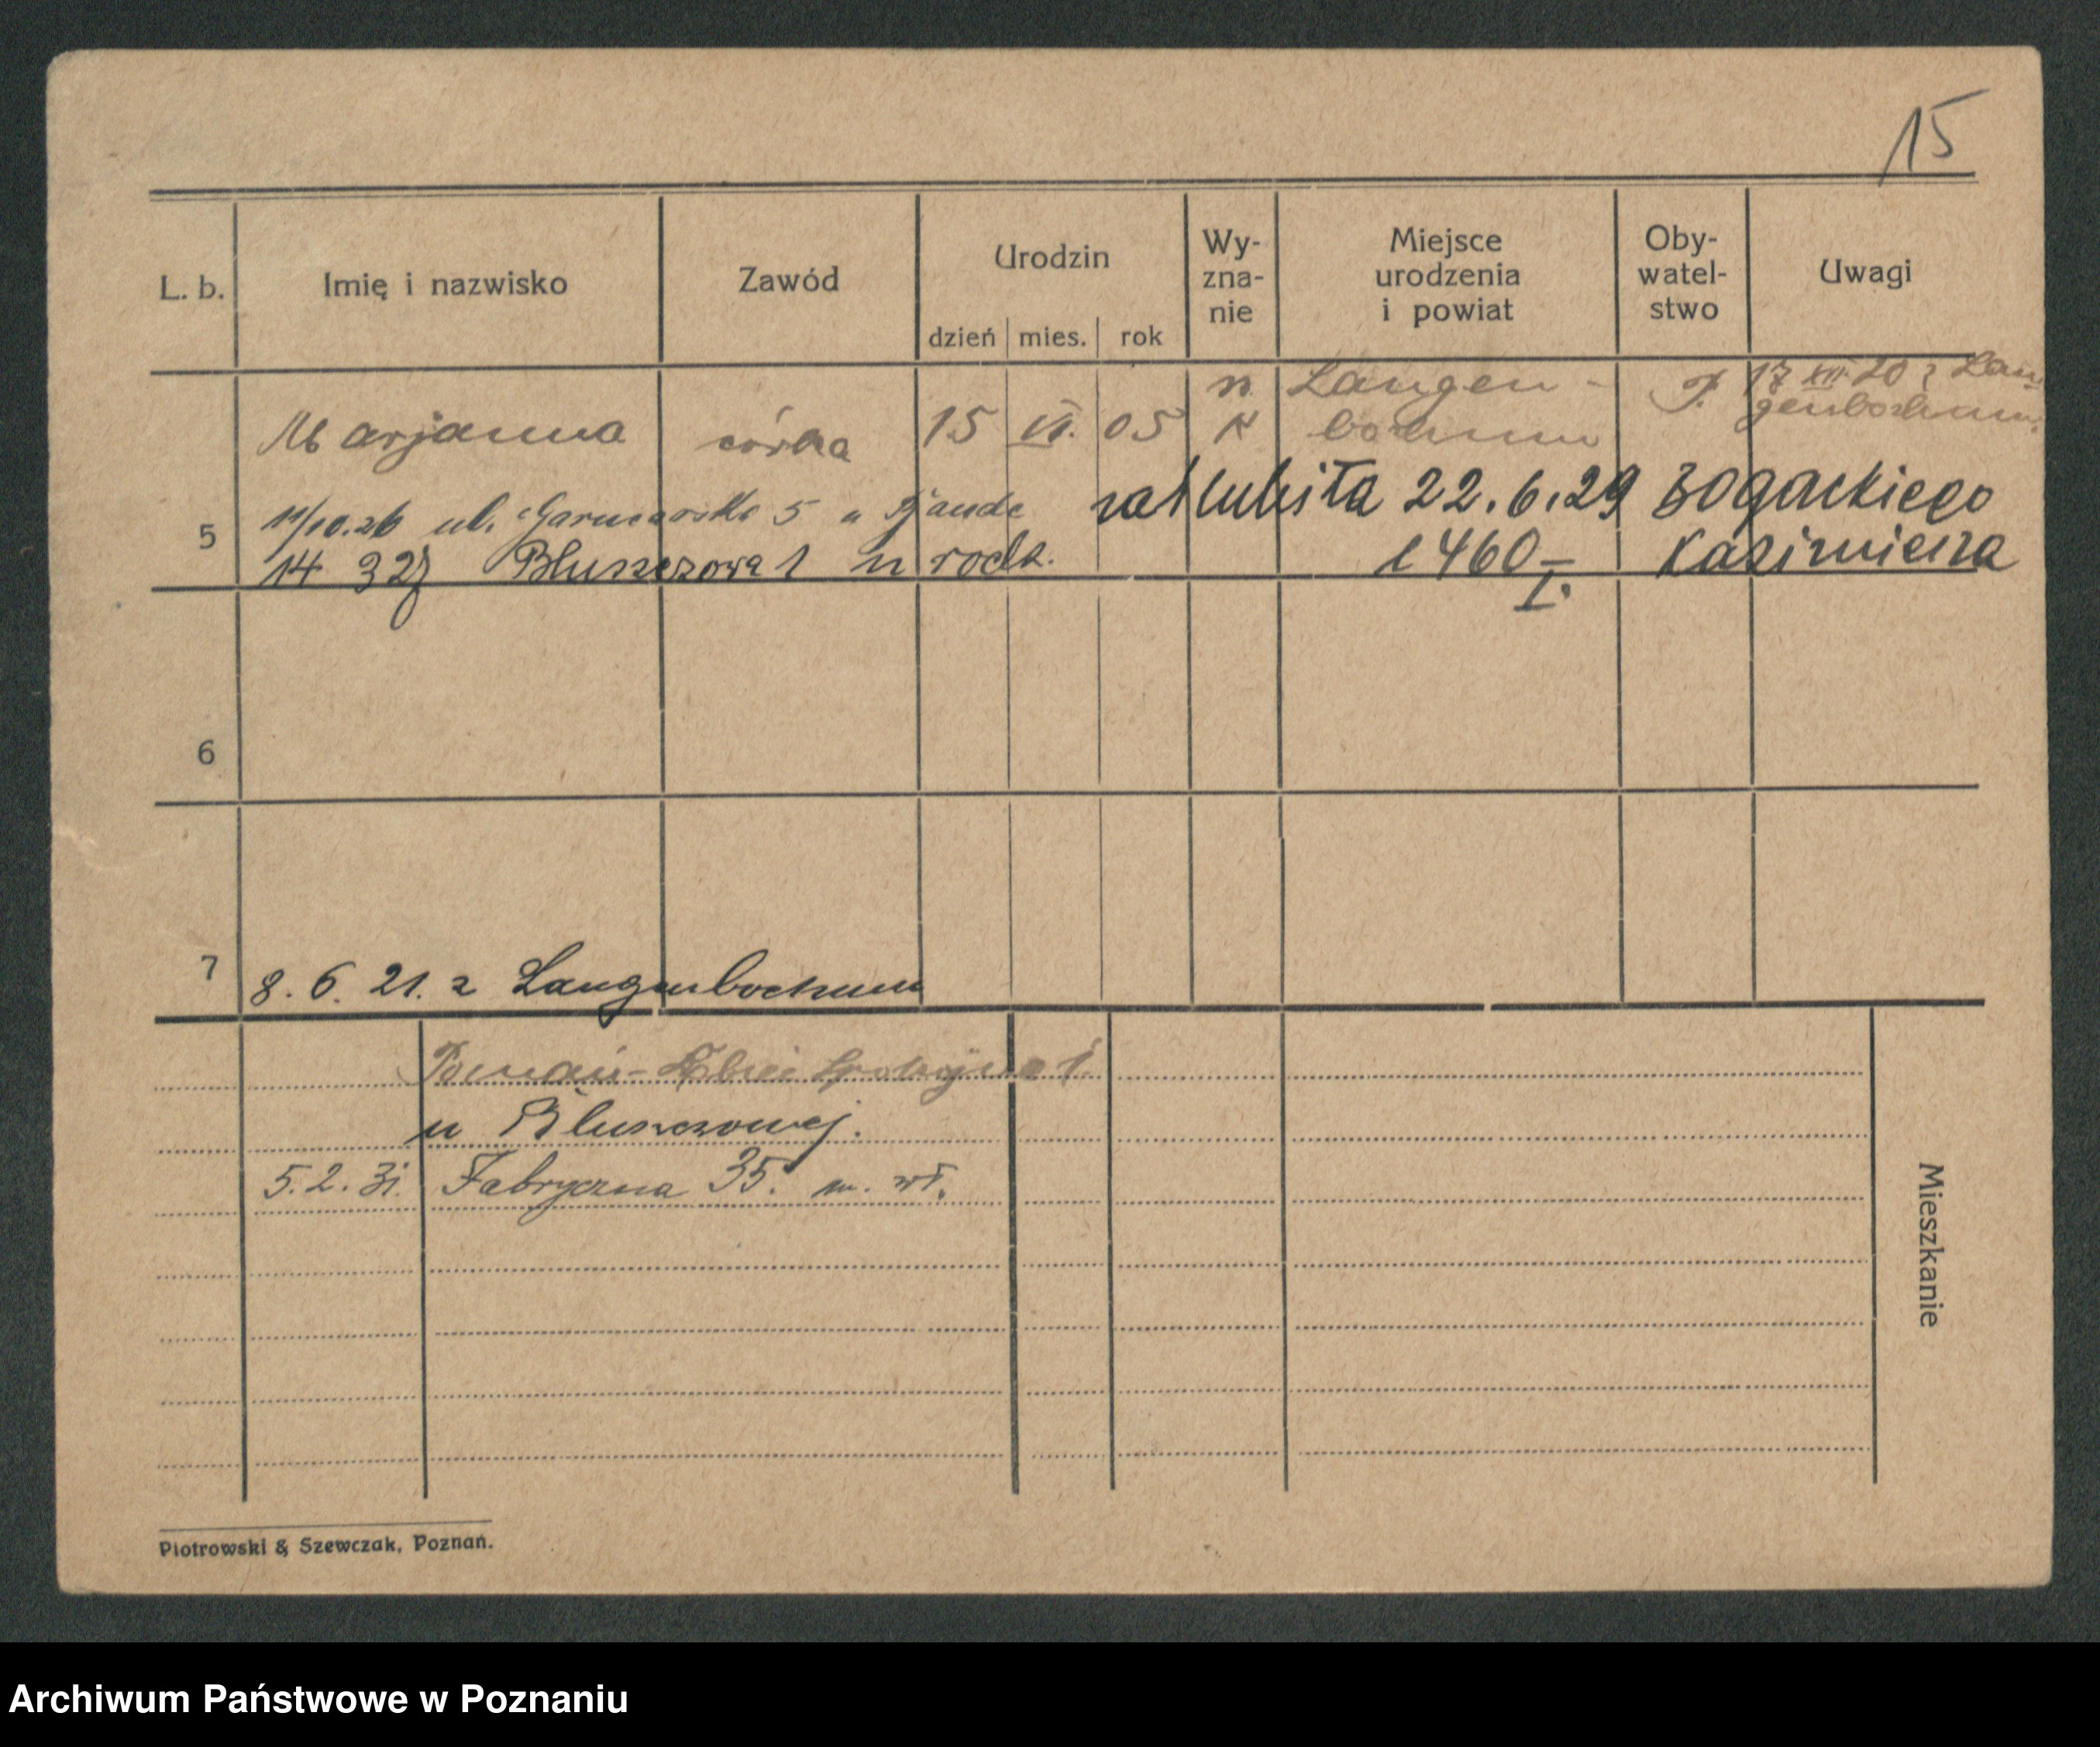 15
L. b.
Imię i nazwisko
Zawód
Urodzin
dzień mies. rok
Wy-
zna-
nie
Miejsce
urodzenia
i powiat
Oby-
watel-
stwo
Uwagi
5
Marjanna córka 15 VI. 05 Langen-
bochum P. 17 XII 20 z Lan-
genbochum
11/10.26 ul. 5
14 3 27 Bluszczowa 1 u rodz.
zaślubiła 22.6.29 Bogackiego
1460 Kazimierza
I.
6
7
8. 6. 21. z Langenbochum
Poznań-
u Bluszczowej.
5.2.31. Fabryczna 35. m. wł.
Mieszkanie
Piotrowski & Szewczak, Poznań.
Archiwum Państwowe w Poznaniu